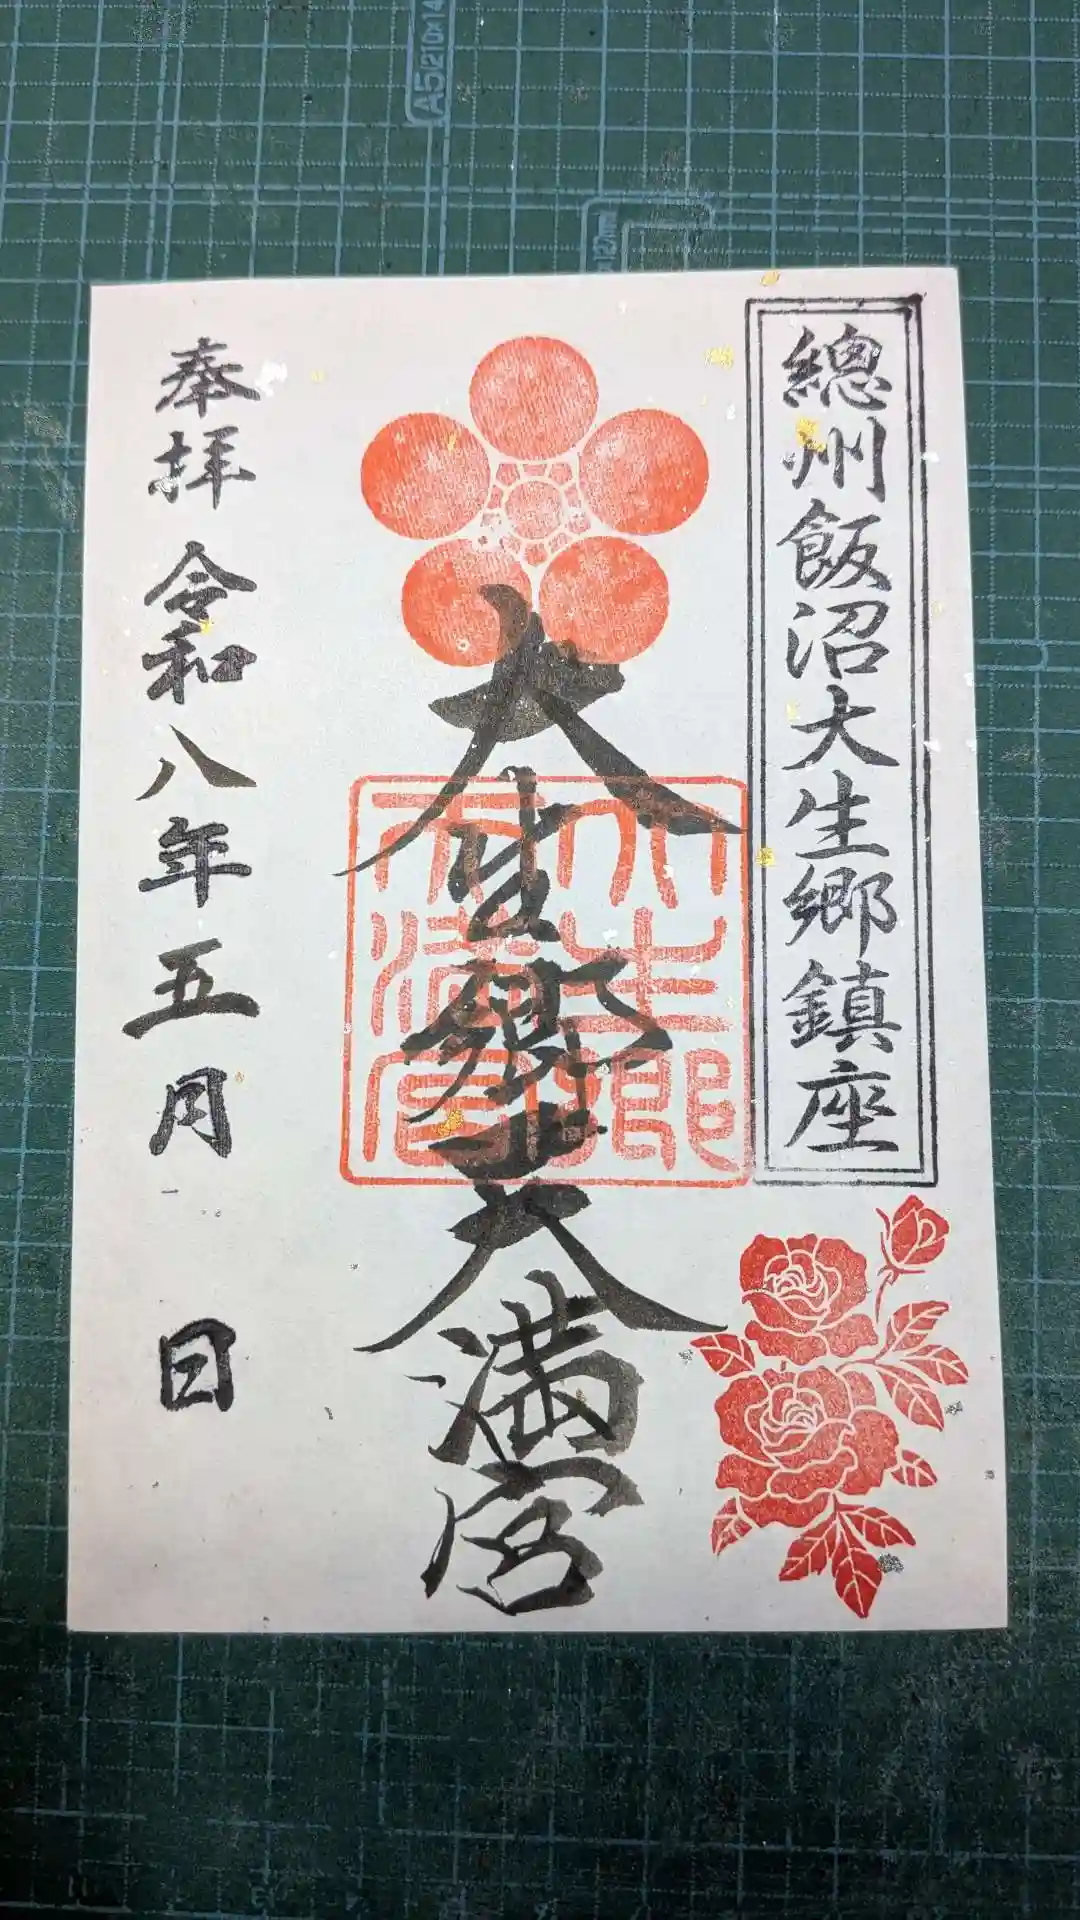 總州飯沼大生郷鎮座
大生郷天満宮
大生郷
天満宮
奉拝 令和八年五月 日
A5(210×14